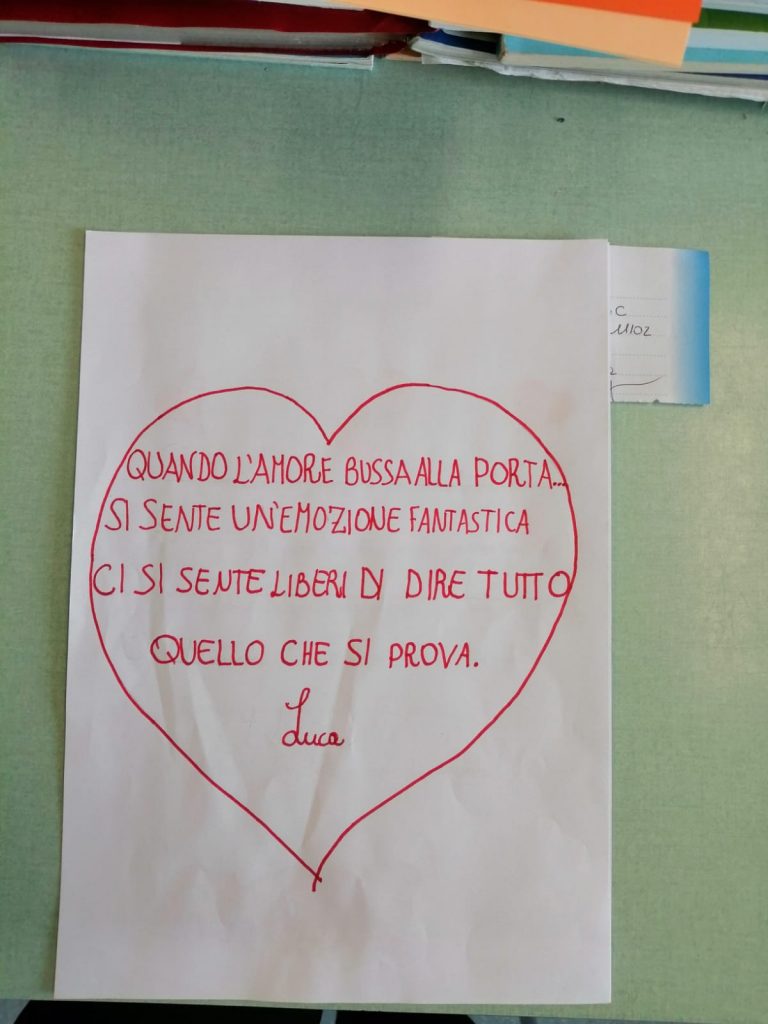 QUANDO L'AMORE BUSSA ALLA PORTA...
SI SENTE UN'EMOZIONE FANTASTICA
CI SI SENTE LIBERI DI DIRE TUTTO
QUELLO CHE SI PROVA.
Luca